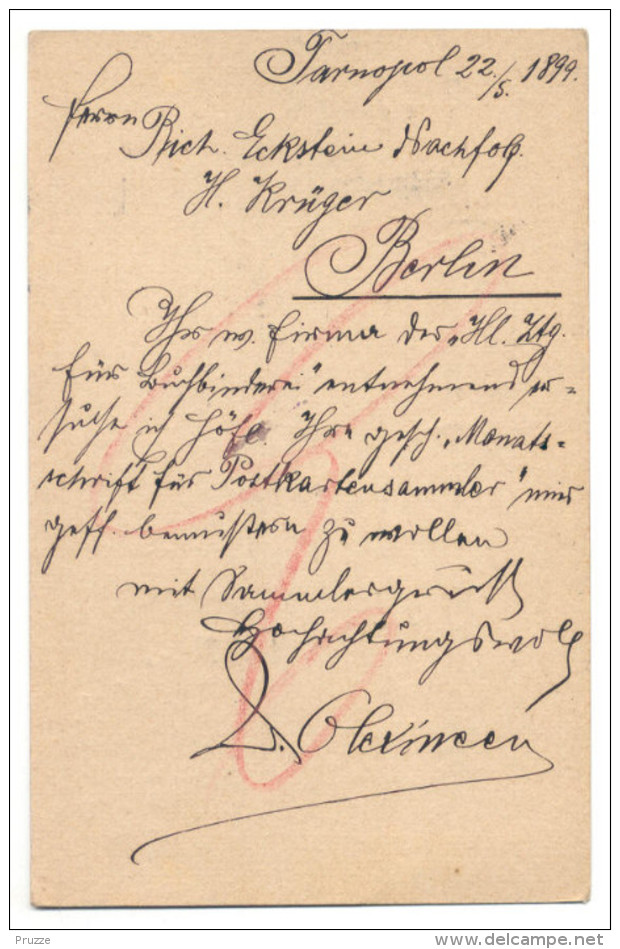 Tarnopol 22./5. 1899.
Herrn
Rich. Eckstein Nachfolg.
H. Krüger
Berlin
Ihre w. Firma der „Ill. Ztg.
für Buchbinderei" entnehmend er-
suche ich höfl. Ihre gesch. „Monats-
schrift für Postkartensammler" mir
geff. bemustern zu wollen
mit Sammlergruß
Hochachtungsvoll
Pruzze
www.delcampe.net